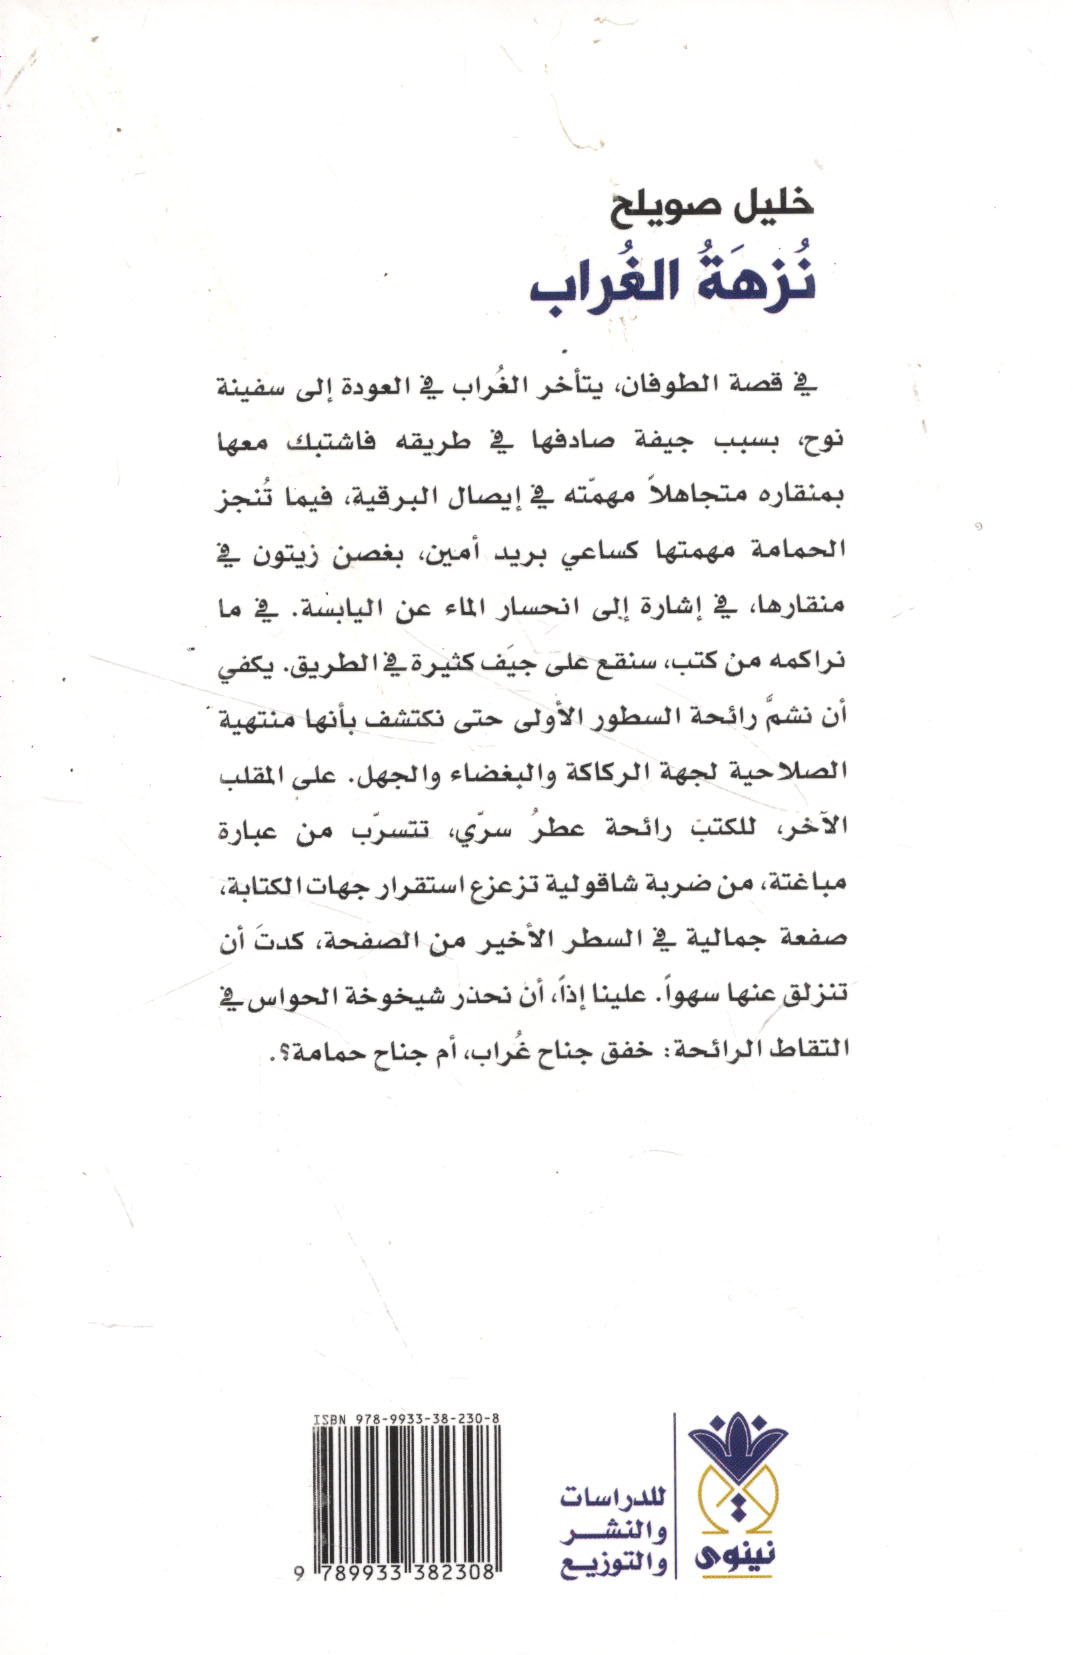 خليل صويلح
نُزهَةُ الغُراب
في قصة الطوفان، يتأخر الغُراب في العودة إلى سفينة
نوح، بسبب جيفة صادفها في طريقه فاشتبك معها
بمنقاره متجاهلاً مهمّته في إيصال البرقية، فيما تُنجز
الحمامة مهمتها كساعي بريد أمين، بغصن زيتون في
منقارها، في إشارة إلى انحسار الماء عن اليابسة. في ما
نراكمه من كتب، سنقع على جيَف كثيرة في الطريق. يكفي
أن نشمَّ رائحة السطور الأولى حتى نكتشف بأنها منتهية
الصلاحية لجهة الركاكة والبغضاء والجهل. على المقلب
الآخر، للكتب رائحة عطرُ سرّي، تتسرّب من عبارة
مباغتة، من ضربة شاقولية تزعزع استقرار جهات الكتابة،
صفعة جمالية في السطر الأخير من الصفحة، كدتَ أن
تنزلق عنها سهواً. علينا إذاً، أن نحذر شيخوخة الحواس في
التقاط الرائحة: خفق جناح غُراب، أم جناح حمامة؟.
نينوى
للدراسات
والنشر
والتوزيع
ISBN 978-9933-38-230-8
9 789933 382308